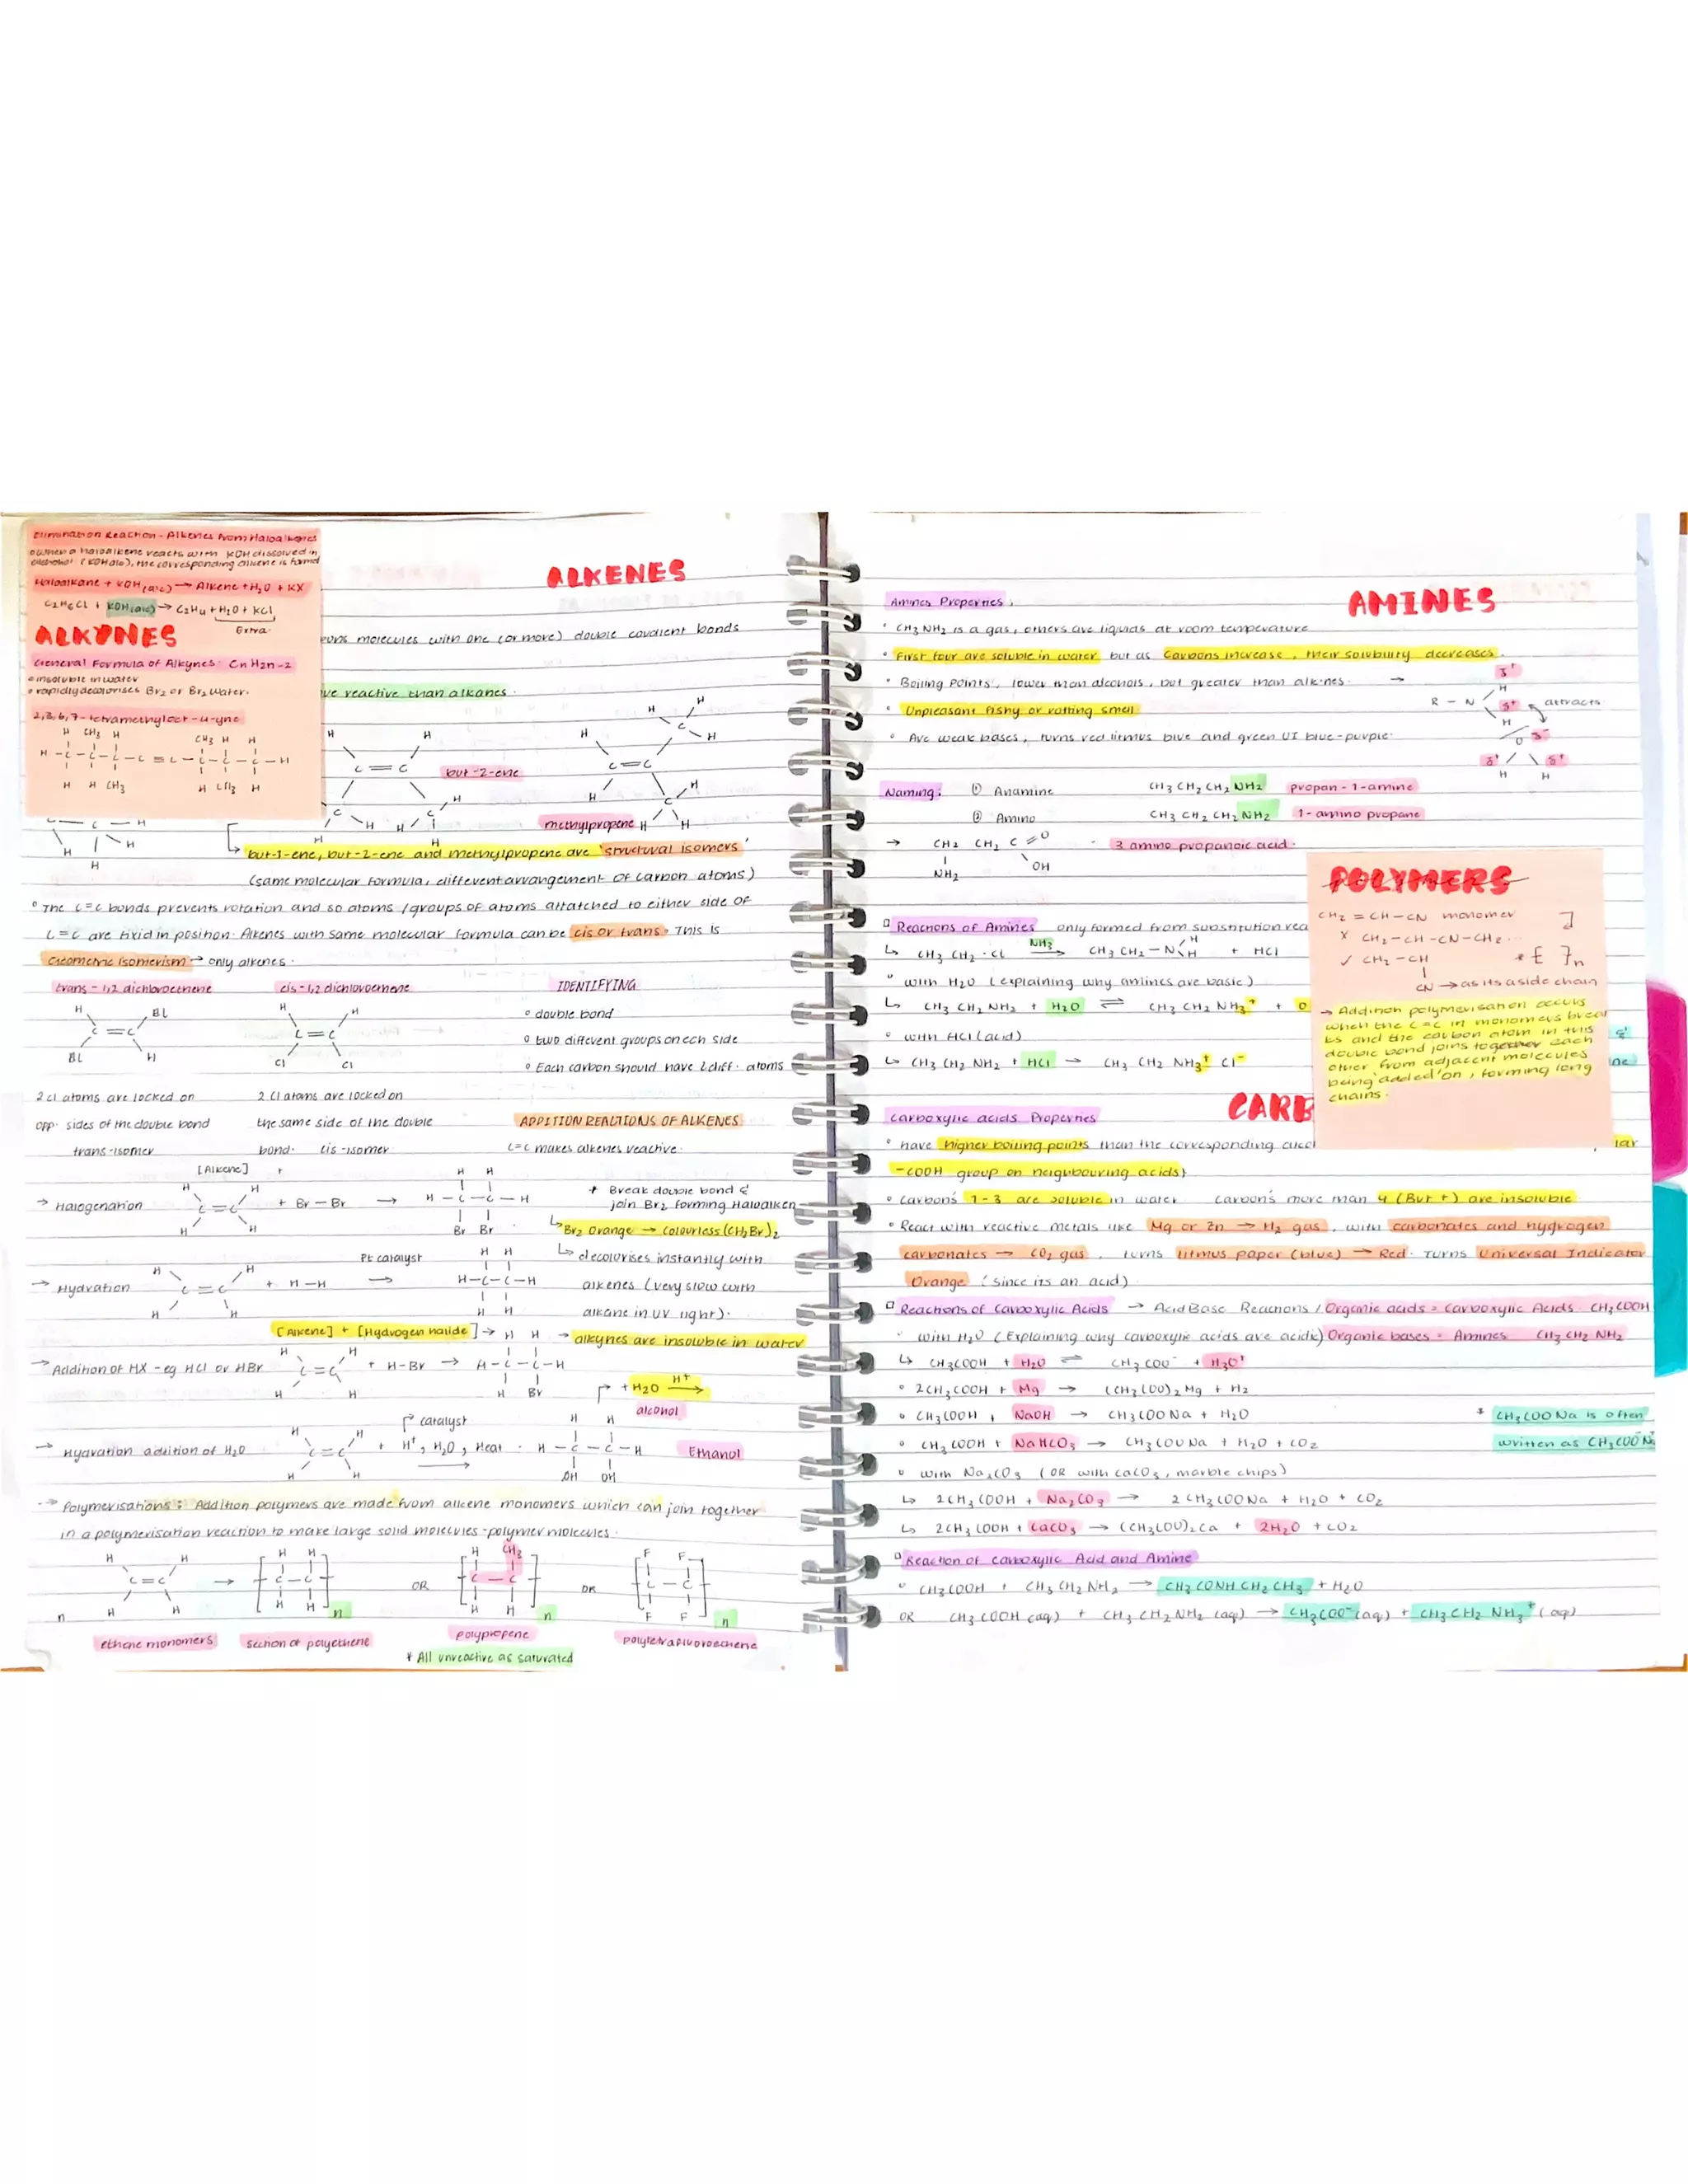 Elimination Reaction - Alkenes from Haloalkanes
when a haloalkene reacts with KOH dissolved in
alcohol (KOH alc), the corresponding alkene is formed
Haloalkane + KOH (alc) → Alkene + H2O + KX
C2H6Cl + KOH(alc) → C2H4 + H2O + KCl
Extra
ALKYNES
General Formula of Alkynes: CnH2n-2
insoluble in water
rapidly decolorises Br2 or Br2 water.
2,3,6,7-tetramethyloct-4-yne
H CH3 H CH3 H H
H - C - C - C - C ≡ C - C - C - C - H
H H CH3 H CH3 H
ALKENES
molecules with one (or more) double covalent bonds
reactive than alkanes.
H H H H H
C = C but-2-ene C = C C H
C H H / C H H C H
H H methylpropene H H
C - H
H H
H
↳ but-1-ene, but-2-ene and methylpropene are 'structural isomers'
(same molecular formula, different arrangement of carbon atoms)
° The C=C bonds prevents rotation and so atoms / groups of atoms attatched to either side of
C=C are fixid in position. Alkenes with same molecular formula can be cis or trans. This is
Geometric Isomerism → only alkenes.
trans - 1,2 dichloroethene cis - 1,2 dichloroethene IDENTIFYING
H Cl H H ° double bond
C = C C = C ° two different groups on ech side
Cl H Cl Cl ° Each carbon should have 2 diff. atoms
2 Cl atoms are locked on 2 Cl atoms are locked on
opp. sides of the double bond the same side of the double ADDITION REACTIONS OF ALKENES
trans-isomer bond. cis-isomer. C=C makes alkenes reactive.
[Alkene] +
→ Halogenation C = C + Br-Br → H - C - C - H * Break double bond &
Br Br join Br2 forming Haloalken
↳ Br2 Orange → Colourless (CH2Br)2
Pt catalyst ↳ decolorises instantly with
→ Hydration C = C + H-H → H-C-C-H alkenes (very slow with
H H alkane in UV light).
[Alkene] + [Hydrogen halide] → H H → alkynes are insoluble in water
→ Addition of HX - eg HCl or HBr C = C + H-Br → H-C-C-H
H H H Br + H2O H+ →
catalyst alcohol
→ Hydration addition of H2O C = C + H+, H2O, Heat → H - C - C - H Ethanol
H H OH OH
→ Polymerisations: Addition polymers are made from alkene monomers which can join together
in a polymerisation reaction to make large solid molecules - polymer molecules.
H H H H H CH3 F F
C = C → C - C OR C - C OR C - C
n H H H H n H H n F F n
ethene monomers section of polyethene polypropene polytetrafluoroethene
* All unreactive as saturated
AMINES
Amines Properties:
° CH3NH2 is a gas, others are liquids at room temperature
° First four are soluble in water but as Carbons increase, their solubility decreases.
° Boiling Points, lower than alcohols, but greater than alkenes. →
° Unpleasant fishy or rotting smell
° Are weak bases, turns red litmus blue and green UI blue-purple.
δ+
H
R - N δ+ attracts
H
O δ-
δ+ δ+
H H
Naming: ① Anamine CH3CH2CH2NH2 propan-1-amine
② Amino CH3CH2CH2NH2 1-amino propane
→ CH2 CH2 C = O 3 amino propanoic acid.
NH2 OH
Reactions of Amines only formed from substitution rea
↳ CH3CH2-Cl NH3 → CH3CH2-N H H + HCl
° with H2O (explaining why amines are basic)
↳ CH3CH2NH2 + H2O ⇌ CH3CH2NH3+ + O
° with HCl (acid)
↳ CH3CH2NH2 + HCl → CH3CH2NH3+ Cl-
POLYMERS
CH2 = CH-CN monomer
x CH2-CH-CN-CH2...
✓ CH2-CH
CN → as its a side chain
n
→ Addition polymerisation occurs
when the C=C in monomers brea
ks and the carbon atom in this
double bond joins together each
other from adjacent molecules
being 'added' on, forming long
chains.
CARB
Carboxylic acids Properties
° have higher boiling points than the corresponding alcol lar
-COOH group on neighbouring acids)
° Carbon's 1-3 are soluble in water Carbon's more than 4 (But+) are insoluble
° React with reactive metals like Mg or Zn → H2 gas, with carbonates and hydrogen
carbonates → CO2 gas, turns litmus paper (blue) → Red. Turns Universal Indicator
Orange (since its an acid)
Reactions of Carboxylic Acids → Acid Base Reactions / Organic acids = Carboxylic Acids CH3COOH
° with H2O (Explaining why carboxylic acids are acidic) Organic bases = Amines CH3CH2NH2
↳ CH3COOH + H2O ⇌ CH3COO- + H3O+
° 2CH3COOH + Mg → (CH3COO)2Mg + H2
° CH3COOH + NaOH → CH3COONa + H2O * CH3COONa is often
° CH3COOH + NaHCO3 → CH3COONa + H2O + CO2 written as CH3COO-Na
° with Na2CO3 (OR with CaCO3, marble chips)
↳ 2CH3COOH + Na2CO3 → 2CH3COONa + H2O + CO2
↳ 2CH3COOH + CaCO3 → (CH3COO)2Ca + 2H2O + CO2
Reaction of Carboxylic Acid and Amine
° CH3COOH + CH3CH2NH2 → CH3CONHCH2CH3 + H2O
OR CH3COOH (aq) + CH3CH2NH2 (aq) → CH3COO- (aq) + CH3CH2NH3+ (aq)